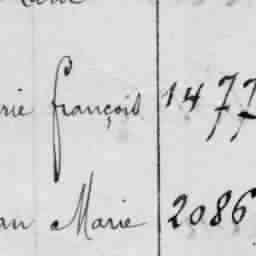 rie françois 1477
an Marie 2086